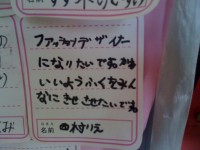 ファッションデザイナー
になりたいです。かわ
いいようふくをみん
なにきせさせたいです。
名前 村りえ
の
み